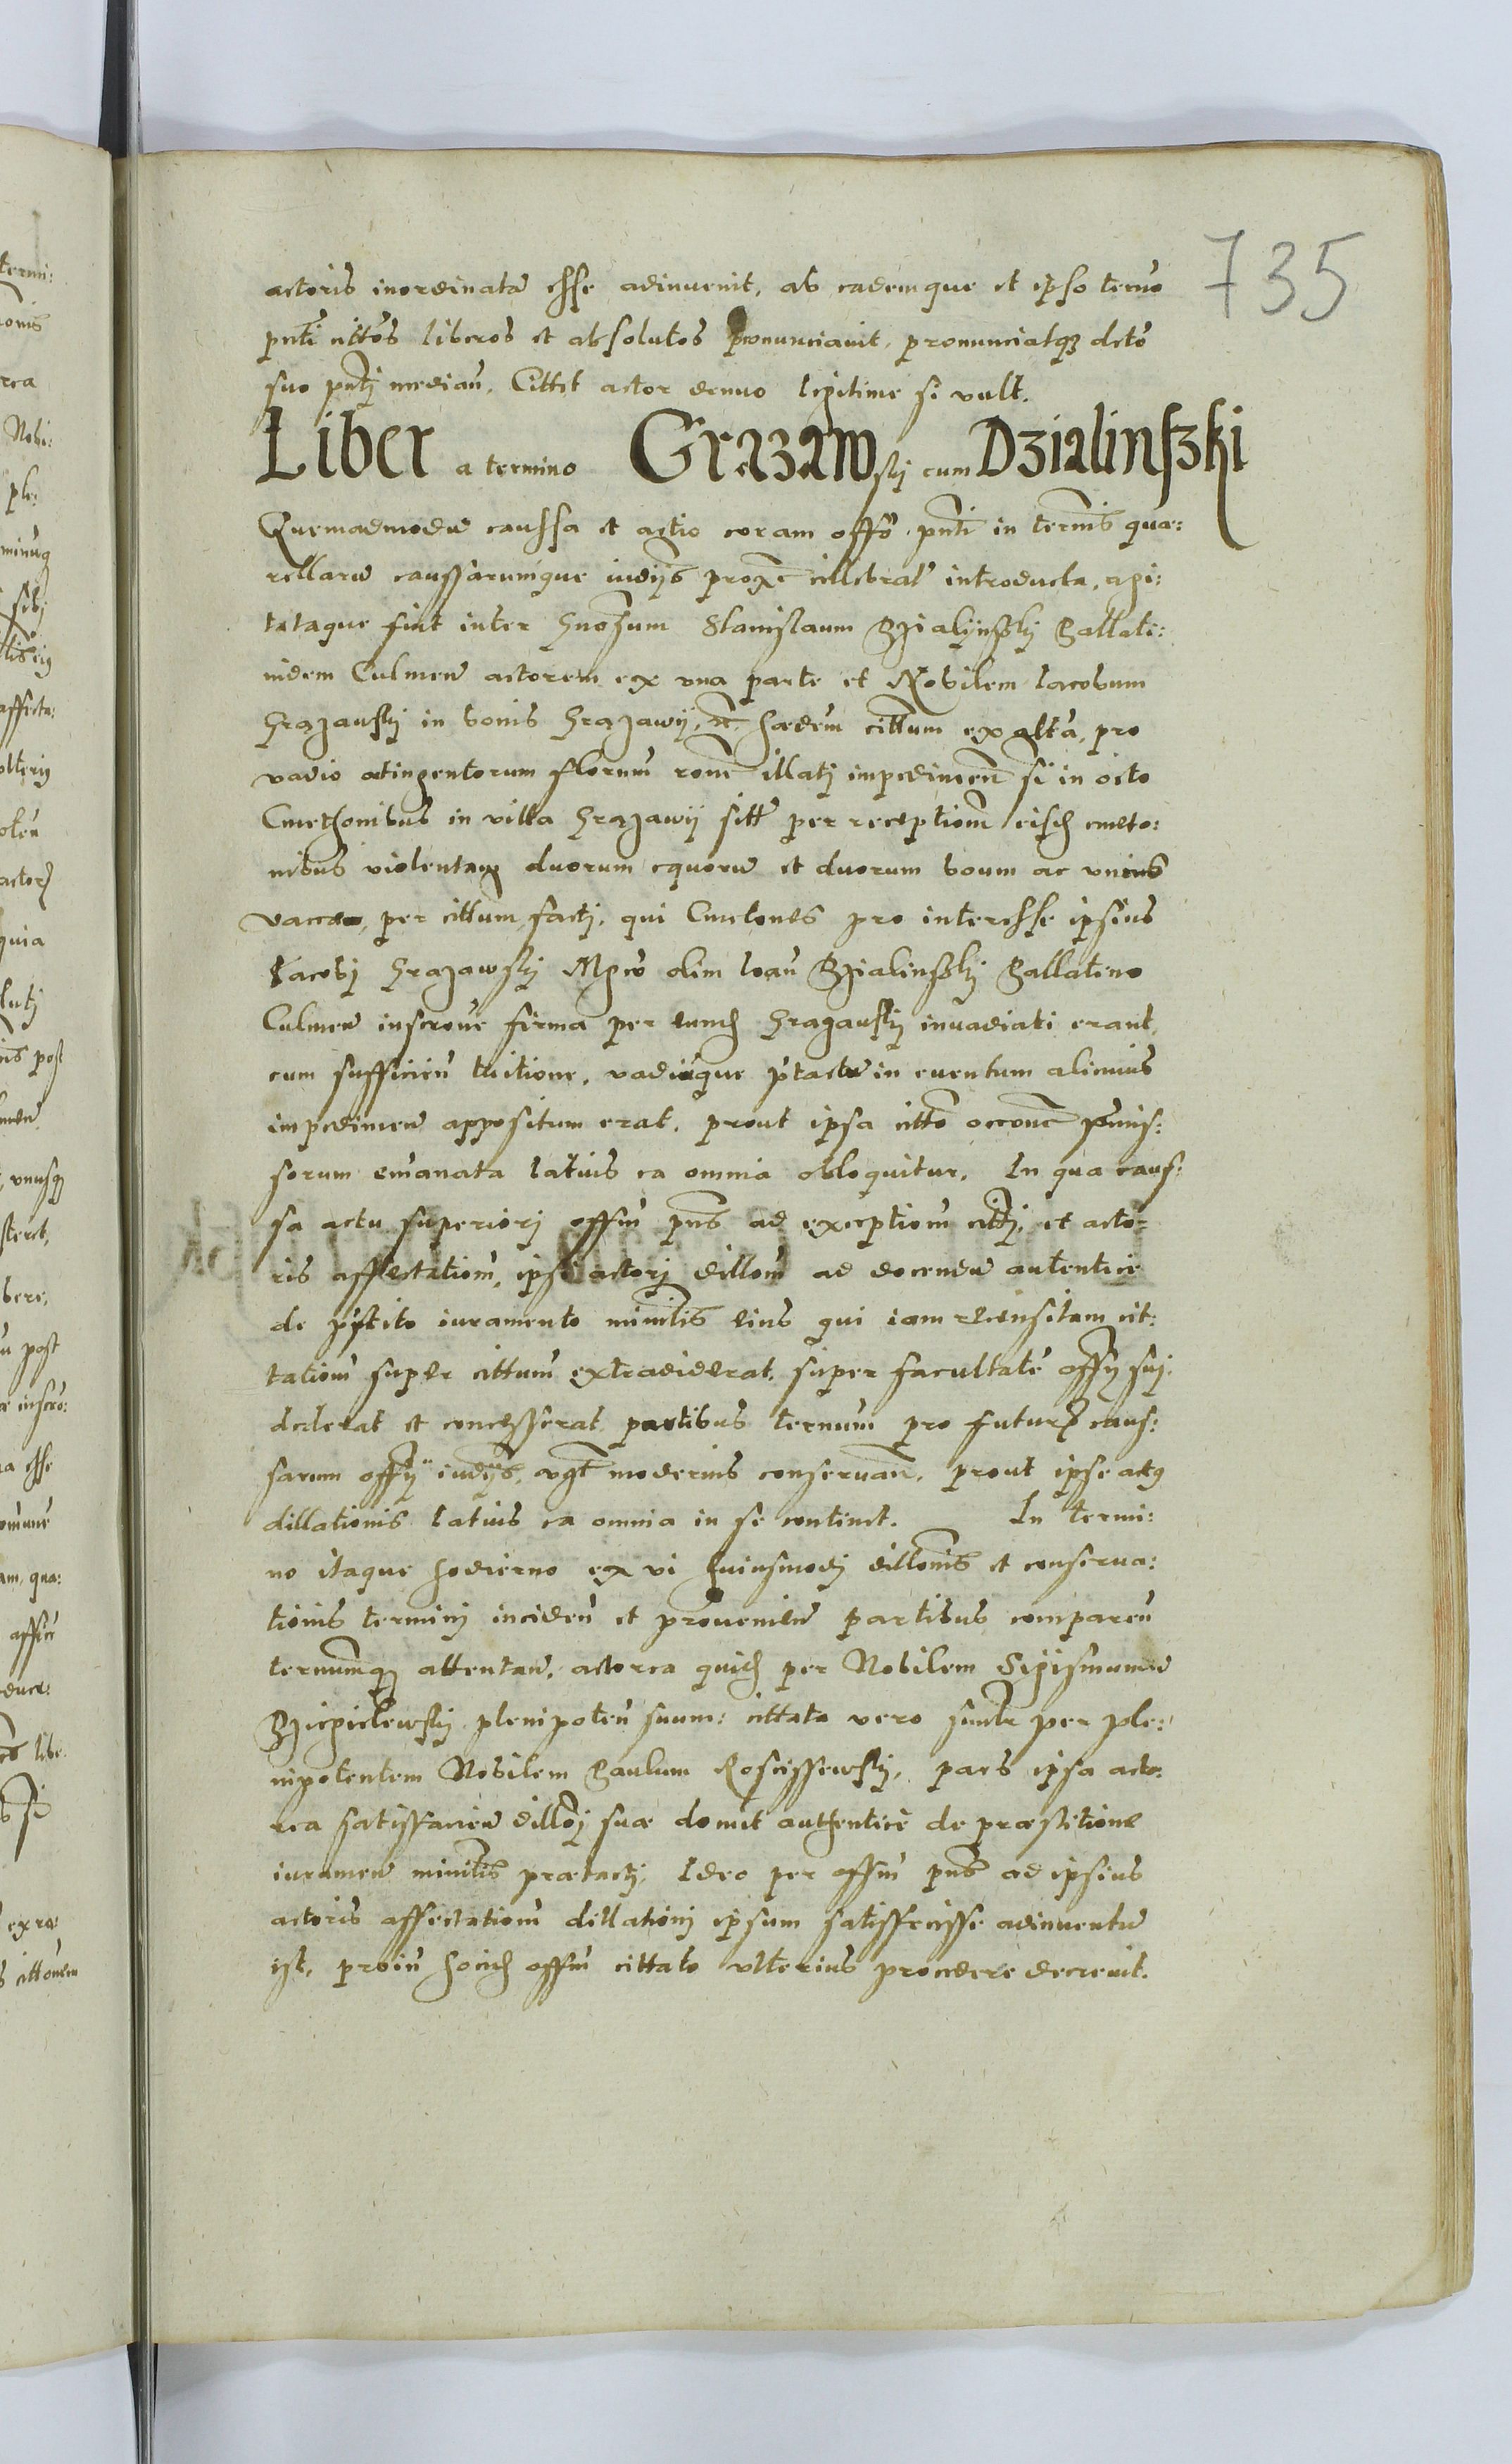 735
actoris inordinatam esse adinvenit, ab eademque et ipso termo
pnti cittos liberos et absolutos pronunciavit, pronunciatq; dcto
suo pntj median. Cittet actor denuo legitime si vult.
Liber a termino Grazawskj cum Dzialinszki
Quemadmodu caussa et actio coram offo pnti in terminis quæ:
rellaru caussarumque iudijs proxe cellebrat introducta, agi:
tataque sint inter Gnosum Stanislaum Dzialijnskj Pallati:
nidem Culmen actorem ex una parte et Nobilem Iacobum
Grazauskj in bonis Grazawij, etc hæredem cittum ex alta, pro
vadio octingentorum florenu rone illatj impedimen si in octo
Cmethonibus in villa Grazawij sitt per receptionem eisd cmeto:
nibus violentam duorum equoru et duorum boum ac unius
vaccæ, per cittum factj, qui Cmetones pro interesse ipsius
Iacobj Grazawskj Mgco olim Ioan Dzialinskj Pallatino
Culmen inscrone firma per eund Grazauskj invadiati erant,
cum sufficien tuitione, vadiuque ptactu in eventum alicuius
impedimen appositum erat, prout ipsa citto occone pmis:
sorum emanata latius ea omnia obloquitur. In qua caus:
sa actu superiorj offm pns ad exceptionem cittj, et acto:
ris affectationem, ipsi actorj dillonem ad docendu autentice
de pstito iuramento ministlis eius qui iam recensitam cit:
tationem super cittum extradiderat, super facultate offij suj,
dederat et concesserat partibus termum pro futur caus:
sarum offij iudijs, vgt modernis conservan, prout ipse actg
dillationis latius ea omnia in se continet. In termi:
no itaque hodierno ex vi huiusmodj dillonis et conserva:
tionis terminj inciden et provenien partibus comparen
termumq; attentan, actorea quid per Nobilem Sigismundu
plenipoten suum: cittata vero simlr per ple:
nipotentem Nobilem Paulum Roscissewskj, pars ipsa acto:
rea satisfacien dillonj suæ docuit authentice de præstitione
iuramen ministlis prætactj, Ideo per offm pns ad ipsius
actoris affectationem dillationj ipsum satisfecisse adinventu
est, proin hocid offm cittato ulterius procedere decrevit.